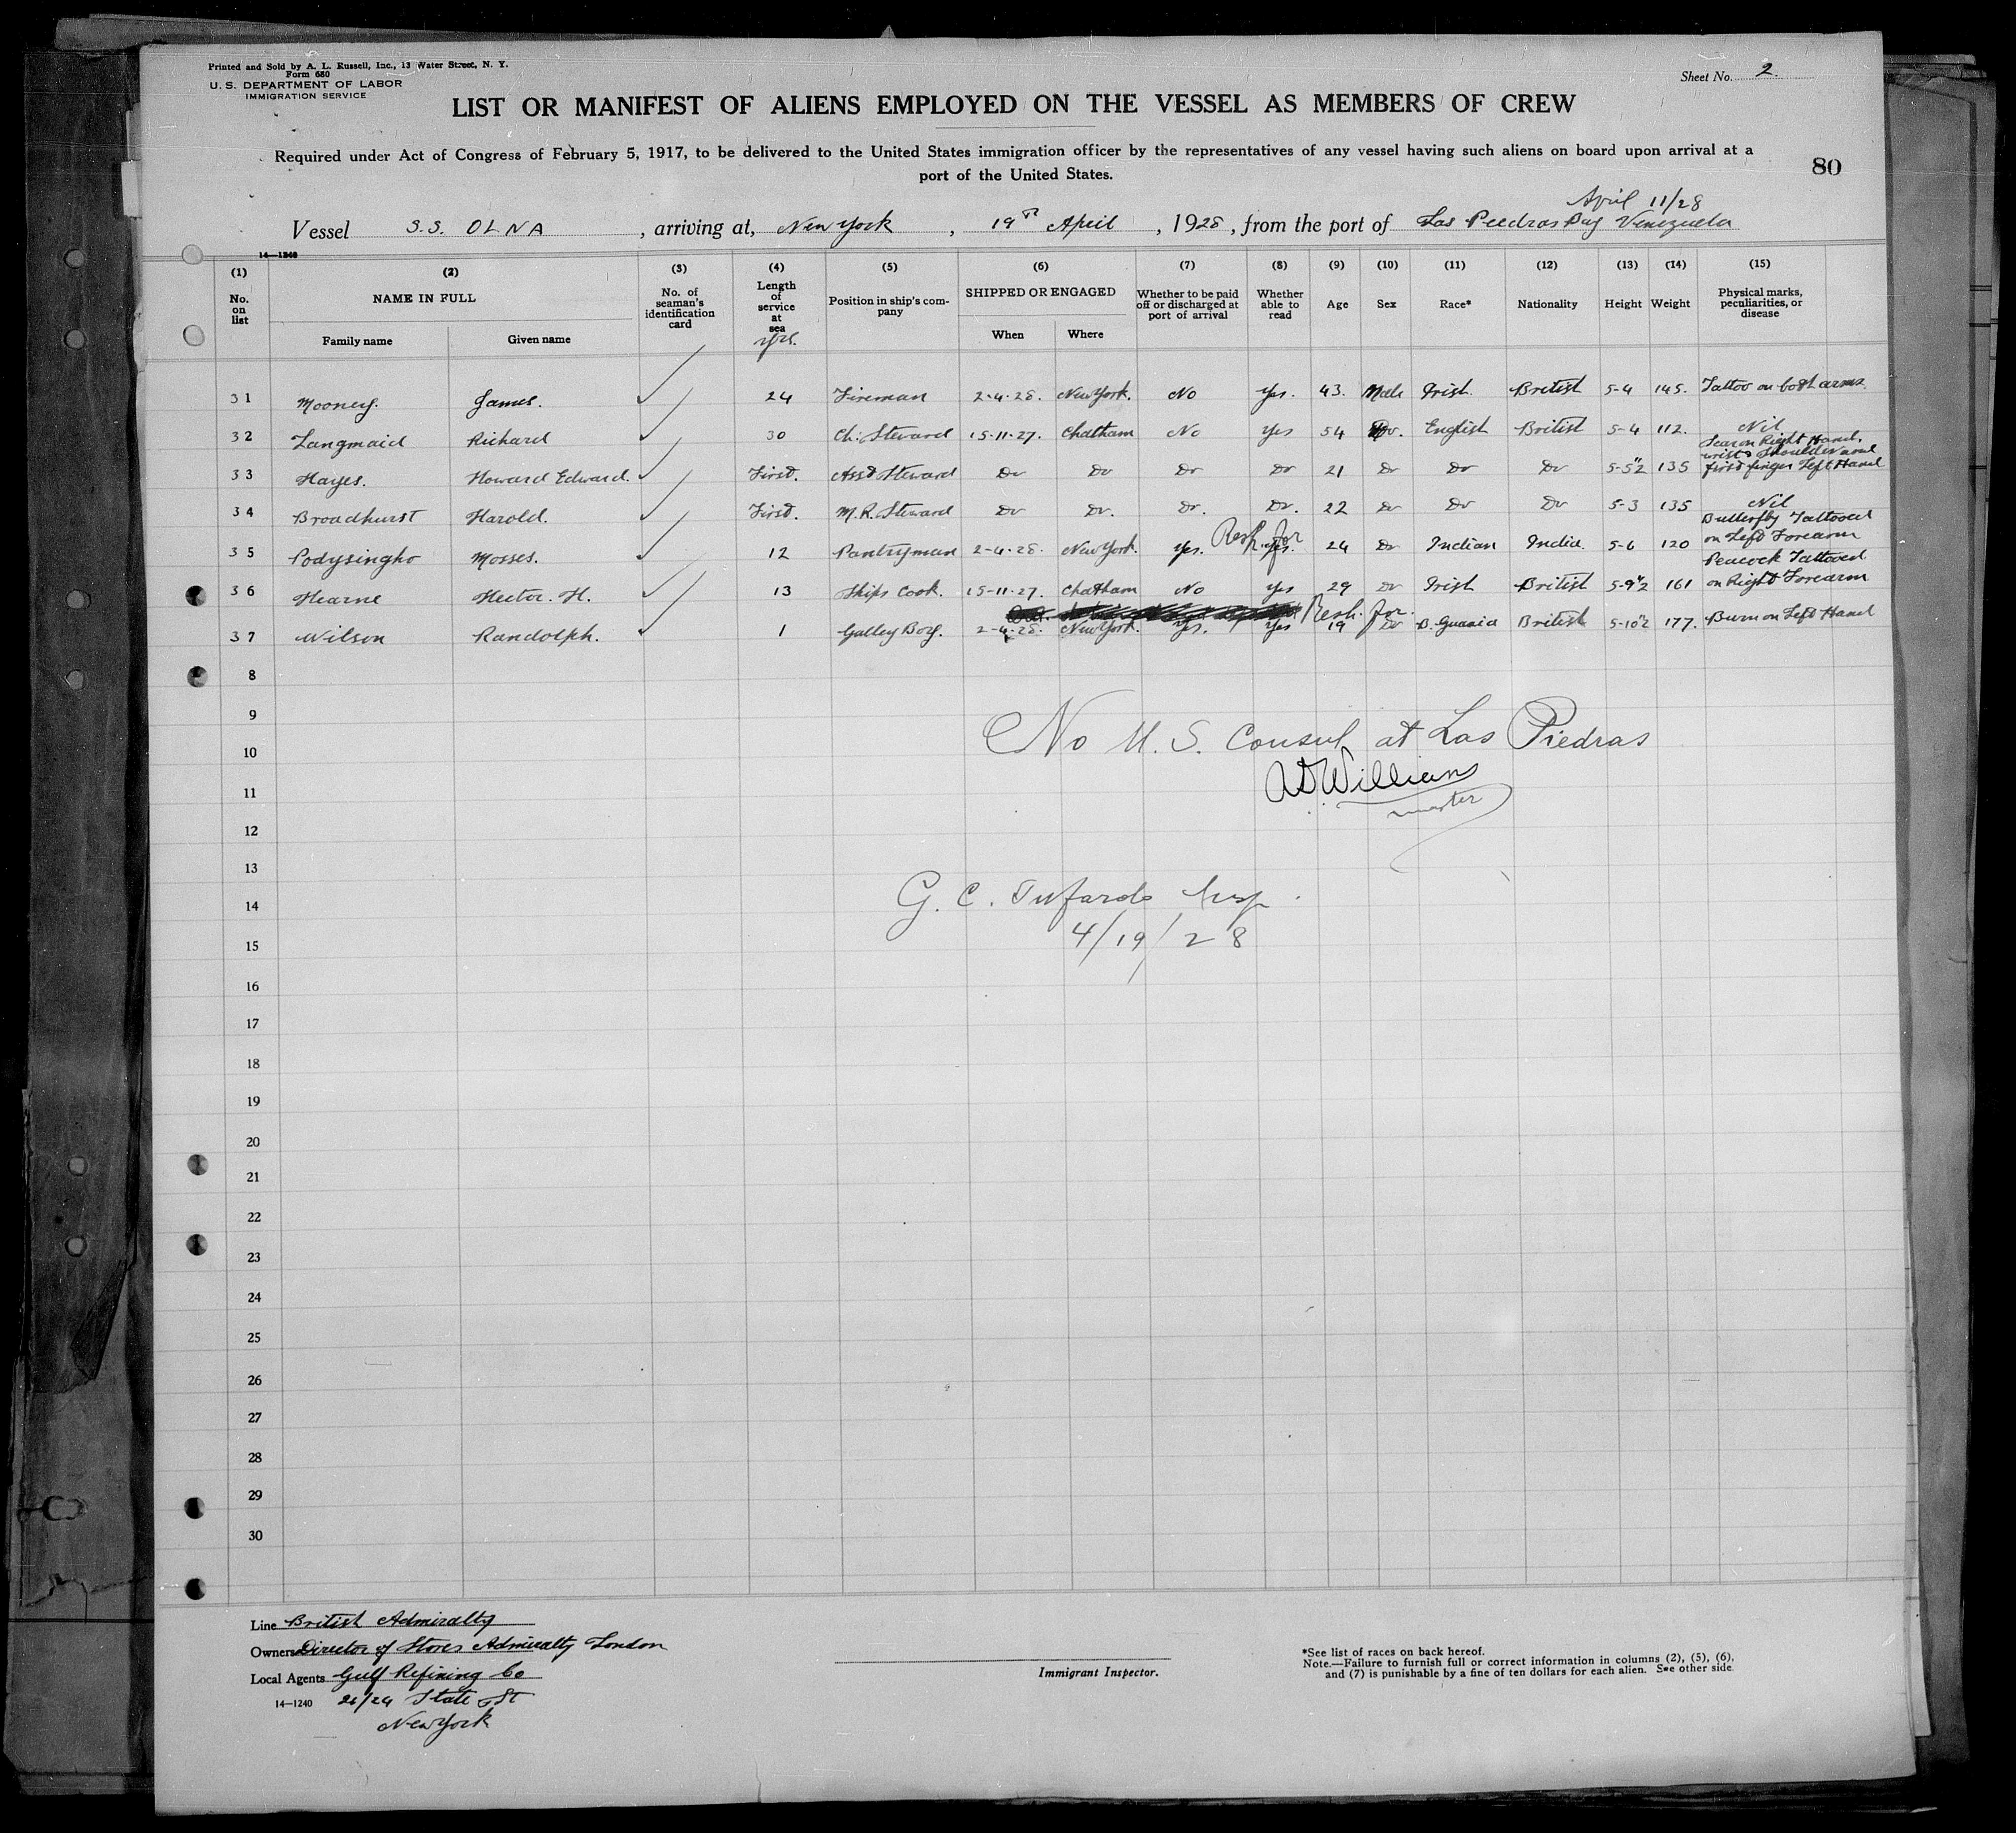 Printed and Sold by A. L. Russell, Inc., 13 Water Street, N. Y.
Form 680
U. S. DEPARTMENT OF LABOR
IMMIGRATION SERVICE
Sheet No. 2.
LIST OR MANIFEST OF ALIENS EMPLOYED ON THE VESSEL AS MEMBERS OF CREW
Required under Act of Congress of February 5, 1917, to be delivered to the United States immigration officer by the representatives of any vessel having such aliens on board upon arrival at a
port of the United States.
80
April 11/28
Vessel S.S. OLNA, arriving at, New York, 19th April, 1928, from the port of Las Piedras Bay Venezuela
14—1240
(1) (2) (3) (4) (5) (6) (7) (8) (9) (10) (11) (12) (13) (14) (15)
No. on list NAME IN FULL No. of seaman's identification card Length of service at sea Position in ship's company SHIPPED OR ENGAGED Whether to be paid off or discharged at port of arrival Whether able to read Age Sex Race* Nationality Height Weight Physical marks, peculiarities, or disease
Family name Given name yrs. When Where
31 Mooney. James. 24 Fireman 2-4-28. New York. No Yes. 43. Male Irish. British 5-4 145. Tattoo on both arms
32 Langmaid Richard 30 Ch: Steward 15-11-27. Chatham No Yes 54 Do. English British 5-4 112. Nil
Scar on Right Hand,
wrist & Shoulder and
33 Hayes. Howard Edward. First. Asst Steward Do Do Do Do 21 Do Do Do 5-5½ 135 first finger Left Hand
34 Broadhurst Harold. First. M.R. Steward Do Do. Do. Do. 22 Do Do Do 5-3 135 Nil
Butterfly Tattooed
35 Podysingho Mosses. 12 Pantryman 2-4-28. New York. Yes. Resh. for Yes. 24 Do Indian India. 5-6 120 on Left Forearm
Peacock Tattooed
36 Hearne Hector. H. 13 Ships Cook. 15-11-27. Chatham No Yes 29 Do Irish British 5-9½ 161 on Right Forearm
Resh. for.
37 Wilson Randolph. 1 Galley Boy. 2-4-28. New York. Yes. Yes 19 Do B. Guania British 5-10½ 177. Burn on Left Hand
8
9
No U. S. Consul at Las Piedras
10
A D Williams
11
master
12
13
14
G. C. Insp.
15
4/19/28
16
17
18
19
20
21
22
23
24
25
26
27
28
29
30
Line British Admiralty
Owners Director of Stores Admiralty London
Local Agents Gulf Refining Co
14—1240 State St
New York
Immigrant Inspector.
*See list of races on back hereof.
Note.—Failure to furnish full or correct information in columns (2), (5), (6),
and (7) is punishable by a fine of ten dollars for each alien. See other side.